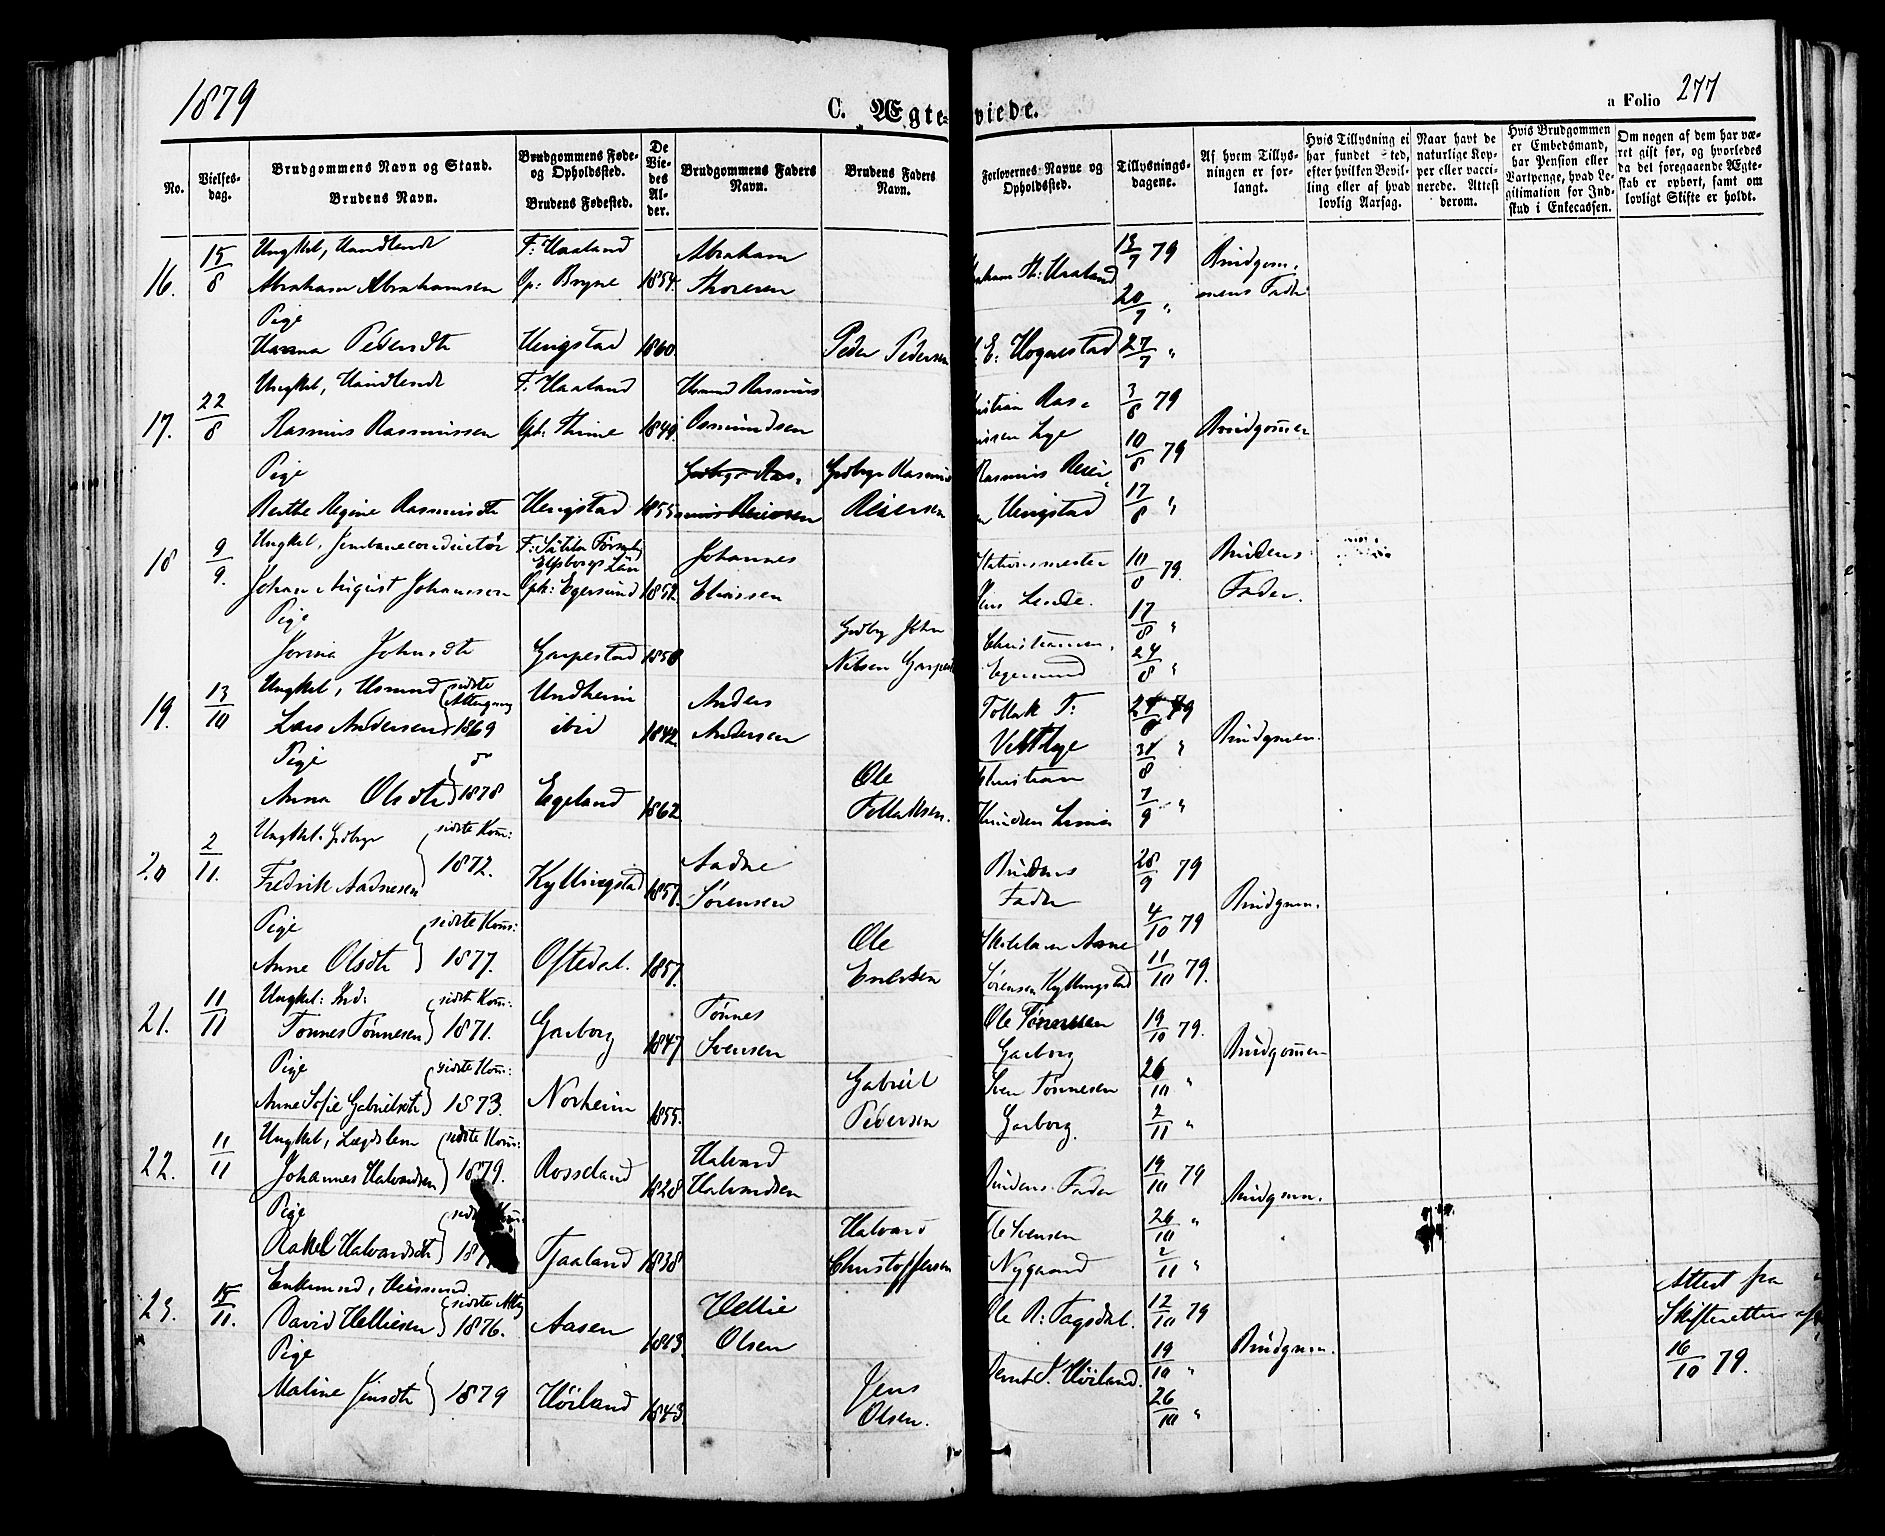 1879
C. Ægteviede.
a Folio 277
No.
Vielsesdag.
Brudgommens Navn og Stand.
Brudens Navn.
Brudgommens Føde- og Opholdssted.
Brudens Fødested.
De Viedes Alder.
Brudgommens Faders Navn.
Brudens Faders Navn.
Forlovernes Navne og Opholdssted.
Tillysningsdagene.
Af hvem Tillysningen er forlangt.
Hvis Tillysning ei har fundet Sted, efter hvilken Bevilling eller af hvad lovlig Aarsag.
Naar havt de naturlige Kopper eller vaccinerede. Attest derom.
Hvis Brudgommen er Embedsmand, har Pension eller Vartpenge, hvad Legitimation for Indskud i Enkecassen.
Om nogen af dem har været gift før, og hvorledes da det foregaaende Ægteskab er ophørt, samt om lovligt Skifte er holdt.
16. 15/8
Ungkal, Handlende F: Haaland Abraham 13/7 79 Brudgom-
Abraham Abrahamsen Op: Bryne 1854. Thoresen Th: Haaland 20/7 " mens Fader
Pige
Hanna Pedersdtr Hengstad 1860. Peder Pedersen E: Hognestad 27/7 "
17. 22/8
Ungkal, Handlende F. Haaland Rasmus 3/8 79
Rasmus Rasmussen Oph: Thime 1849. Osmundsen Lye 10/8 79 Brudgommen
Pige Gedbgr Rasmus Rasmus Reier
Berthe Regine Rasmusdtr Hengstad 1855 Reiersen Hengstad 17/8 "
18 9/9.
Ungkal, Jernbaneconductør F: Elfsborgs Län Johannes Stationsmester 10/8 79. Brudens
Johan August Johanssen Oph: Egersund 1852. Eliassen Lende. 17/8 " Fader.
Pige Gedbg John Christiansen,
Jorina Johnsdtr Garpestad 1858 Nilsen Egersund 24/8 "
19. 13/10
Ungkal, Husmand sidste Altergang Undheim Anders Tollak T:
Lars Andersen 1869 ibid 1842. Andersen 31/8 " Brudgmen.
Pige do Ole Christian
Anna Olsdtr 1878 Egeland 1862 Tollaksen. Knudsen 7/9 "
20 2/11.
Ungkal. Gedbgr sidste Kom: Aadne Brudens 28/9 79
Fredrik Aadnesen 1872. Kyllingstad 1857. Sørensen Fader Brudgmen.
Pige sidste Kom: Ole 4/10 79
Anne Olsdtr 1877. Oftedal. 1857. Sørensen Kyllingstad 11/10 79.
21. 11/11
Ungkal: Ind: sidste Kom: Tønnes Ole Tønnesen 19/10 79.
Tønnes Tønnesen 1871. Garborg 1847 Svensen Garborg Brudgommen
Pige sidste Kom: Gabriel Sven Tønnesen 26/10 "
Anne Sofie Gabrielsdtr 1873. Norheim 1855. Pedersen Garborg. 2/11 "
22. 11/11
Ungkal, Lægdslem sidste Kom: Halvard
Johannes Halvardsen 1879. Rosseland 1828 Halvardsen Brudens Fader 19/10 79 Brudgmn.
Pige Halvard Ole Svensen 26/10 "
Rakel Halvardsdtr Tjaaland 1838 Christoffersen Nygaard 2/11 "
23. 15/11.
Enkemand, Huusmand sidste Altg Hellie Ole R: Tagsdal. 12/10 79 Attest fra
David Helliesen 1876. Aasen 1813. Olsen 19/10 " Brudgmen. Skifteretten af
Pige Jens Høiland. 16/10 79.
Maline Jensdtr 1879 Høiland 1843. Olsen. 26/10 "